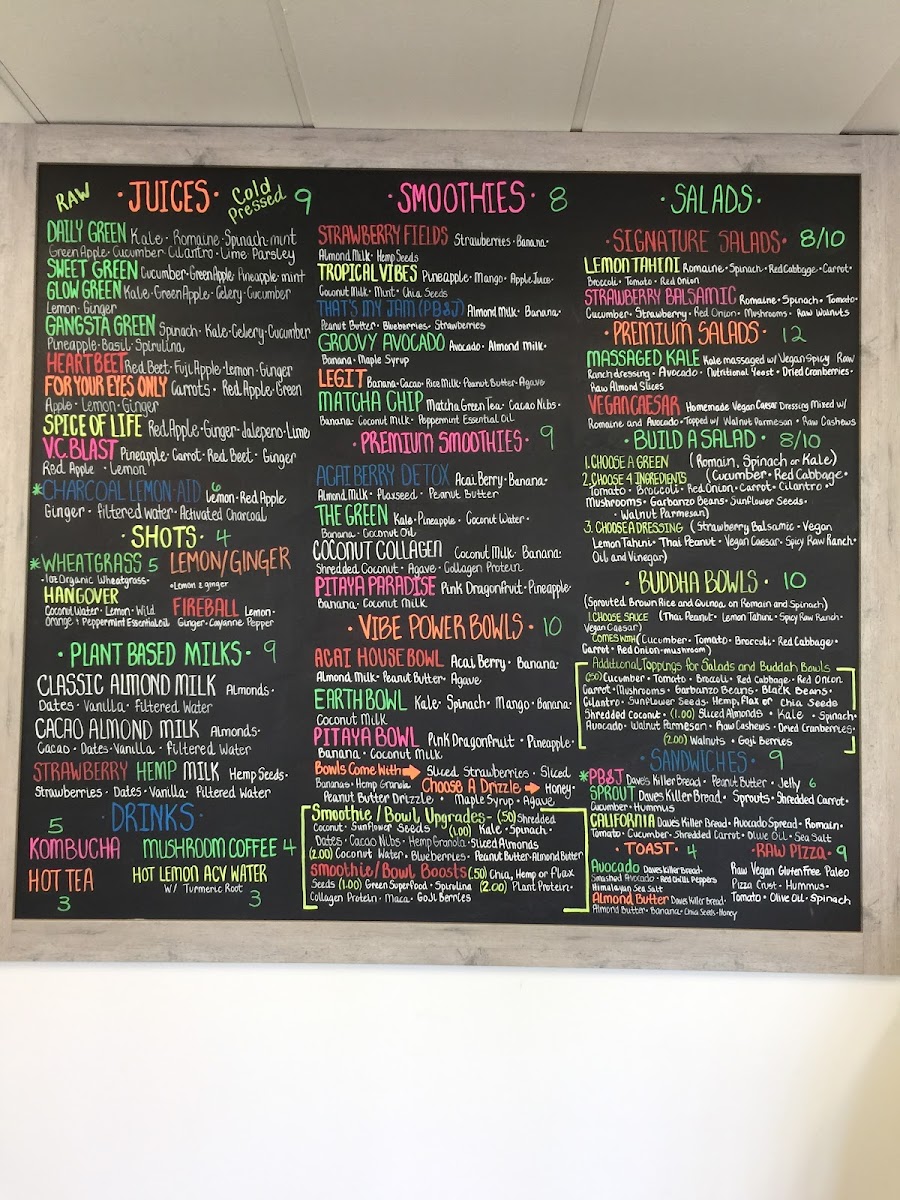 RAW · JUICES · Cold Pressed 9
DAILY GREEN Kale · Romaine · Spinach · mint
Green Apple · Cucumber · Cilantro · Lime Parsley
SWEET GREEN Cucumber · Green Apple · Pineapple · mint
GLOW GREEN Kale · Green Apple · Celery · Cucumber
Lemon · Ginger
GANGSTA GREEN Spinach · Kale · Celery · Cucumber
Pineapple · Basil · Spirulina
HEARTBEET Red Beet · Fuji Apple · Lemon · Ginger
FOR YOUR EYES ONLY Carrots · Red Apple · Green
Apple · Lemon · Ginger
SPICE OF LIFE Red Apple · Ginger · Jalepeno · Lime
V.C. BLAST Pineapple · Carrot · Red Beet · Ginger
Red Apple · Lemon
*CHARCOAL LEMON-AID 6 Lemon · Red Apple
Ginger · Filtered Water · Activated Charcoal
· SHOTS · 4
*WHEATGRASS 5
· 1oz Organic Wheatgrass ·
LEMON/GINGER
· Lemon & ginger
HANGOVER
Coconut Water · Lemon · Wild
Orange & Peppermint Essential Oil
FIREBALL Lemon ·
Ginger · Cayenne Pepper
· PLANT BASED MILKS · 9
CLASSIC ALMOND MILK Almonds ·
Dates · Vanilla · Filtered Water
CACAO ALMOND MILK Almonds ·
Cacao · Dates · Vanilla · Filtered Water
STRAWBERRY HEMP MILK Hemp Seeds ·
Strawberries · Dates · Vanilla · Filtered Water
· DRINKS ·
5
KOMBUCHA MUSHROOM COFFEE 4
HOT TEA HOT LEMON ACV WATER
W/ Turmeric Root
3 3
· SMOOTHIES · 8
STRAWBERRY FIELDS Strawberries · Banana ·
Almond Milk · Hemp Seeds
TROPICAL VIBES Pineapple · Mango · Apple Juice ·
Coconut Milk · Mint · Chia Seeds
THAT'S MY JAM (PB&J) Almond Milk · Banana ·
Peanut Butter · Blueberries · Strawberries
GROOVY AVOCADO Avocado · Almond Milk ·
Banana · Maple Syrup
LEGIT Banana · Cacao · Rice Milk · Peanut Butter · Agave
MATCHA CHIP Matcha Green Tea · Cacao Nibs ·
Banana · Coconut Milk · Peppermint Essential Oil
· PREMIUM SMOOTHIES · 9
ACAI BERRY DETOX Acai Berry · Banana ·
Almond Milk · Flaxseed · Peanut Butter
THE GREEN Kale · Pineapple · Coconut Water ·
Banana · Coconut Oil
COCONUT COLLAGEN Coconut Milk · Banana
Shredded Coconut · Agave · Collagen Protein
PITAYA PARADISE Pink Dragonfruit · Pineapple ·
Banana · Coconut Milk
· VIBE POWER BOWLS · 10
ACAI HOUSE BOWL Acai Berry · Banana ·
Almond Milk · Peanut Butter · Agave
EARTH BOWL Kale · Spinach · Mango · Banana ·
Coconut Milk
PITAYA BOWL Pink Dragonfruit · Pineapple ·
Banana · Coconut Milk
Bowls Come With Sliced Strawberries · Sliced
Bananas · Hemp Granola Choose A Drizzle Honey ·
Peanut Butter Drizzle · Maple Syrup · Agave
Smoothie/Bowl Upgrades - (.50) Shredded
Coconut · Sunflower Seeds · (1.00) Kale · Spinach ·
Dates · Cacao Nibs · Hemp Granola · Sliced Almonds
(2.00) Coconut Water · Blueberries · Peanut Butter · Almond Butter
smoothie/Bowl Boosts (.50) Chia, Hemp or Flax
Seeds · (1.00) Green Superfood · Spirulina (2.00) Plant Protein ·
Collagen Protein · Maca · GoJi Berries
· SALADS ·
· SIGNATURE SALADS · 8/10
LEMON TAHINI Romaine · Spinach · Red Cabbage · Carrot ·
Broccoli · Tomato · Red Onion
STRAWBERRY BALSAMIC Romaine · Spinach · Tomato ·
Cucumber · Strawberry · Red Onion · Mushrooms · Raw Walnuts
· PREMIUM SALADS · 12
MASSAGED KALE Kale massaged w/ Vegan Spicy Raw
Ranch dressing · Avocado · Nutritional Yeast · Dried Cranberries ·
Raw Almond Slices
VEGAN CAESAR Homemade Vegan Caesar Dressing Mixed w/
Romaine and Avocado · Topped w/ Walnut Parmesan · Raw Cashews
· BUILD A SALAD · 8/10
1. CHOOSE A GREEN (Romain, Spinach or Kale)
2. CHOOSE 4 INGREDIENTS (Cucumber · Red Cabbage ·
Tomato · Broccoli · Red Onion · Carrot · Cilantro ·
Mushrooms · Garbanzo Beans · Sunflower Seeds ·
· Walnut Parmesan)
3. CHOOSE A DRESSING (Strawberry Balsamic · Vegan
Lemon Tahini · Thai Peanut · Vegan Caesar · Spicy Raw Ranch ·
Oil and Vinegar)
· BUDDHA BOWLS · 10
(Sprouted Brown Rice and Quinoa on Romain and Spinach)
1. CHOOSE SAUCE (Thai Peanut · Lemon Tahini · Spicy Raw Ranch ·
Vegan Caesar)
COMES WITH (Cucumber · Tomato · Broccoli · Red Cabbage ·
Carrot · Red Onion · mushroom)
Additional Toppings for Salads and Buddah Bowls
(.50) Cucumber · Tomato · Brocoli · Red Cabbage · Red Onion
Carrot · Mushrooms · Garbanzo Beans · Black Beans ·
Cilantro · Sunflower Seeds · Hemp, Flax or Chia Seeds
Shredded Coconut · (1.00) Sliced Almonds · Kale · Spinach ·
Avocado · Walnut Parmesan · Raw Cashews · Dried Cranberries ·
(2.00) Walnuts · Goji Berries
· SANDWICHES · 9
*PB&J Daves Killer Bread · Peanut Butter · Jelly 6
SPROUT Daves Killer Bread · Sprouts · Shredded Carrot ·
Cucumber · Hummus
CALIFORNIA Daves Killer Bread · Avocado Spread · Romain ·
Tomato · Cucumber · Shredded Carrot · Olive Oil · Sea Salt
· TOAST · 4
Avocado Daves Killer Bread ·
Smashed Avocado · Red Chilli Peppers
Himalayan Sea Salt
Almond Butter Daves Killer Bread ·
Almond Butter · Banana · Chia Seeds · Honey
· RAW PIZZA · 9
Raw Vegan Gluten Free Paleo
Pizza Crust · Hummus ·
Tomato · Olive Oil · Spinach